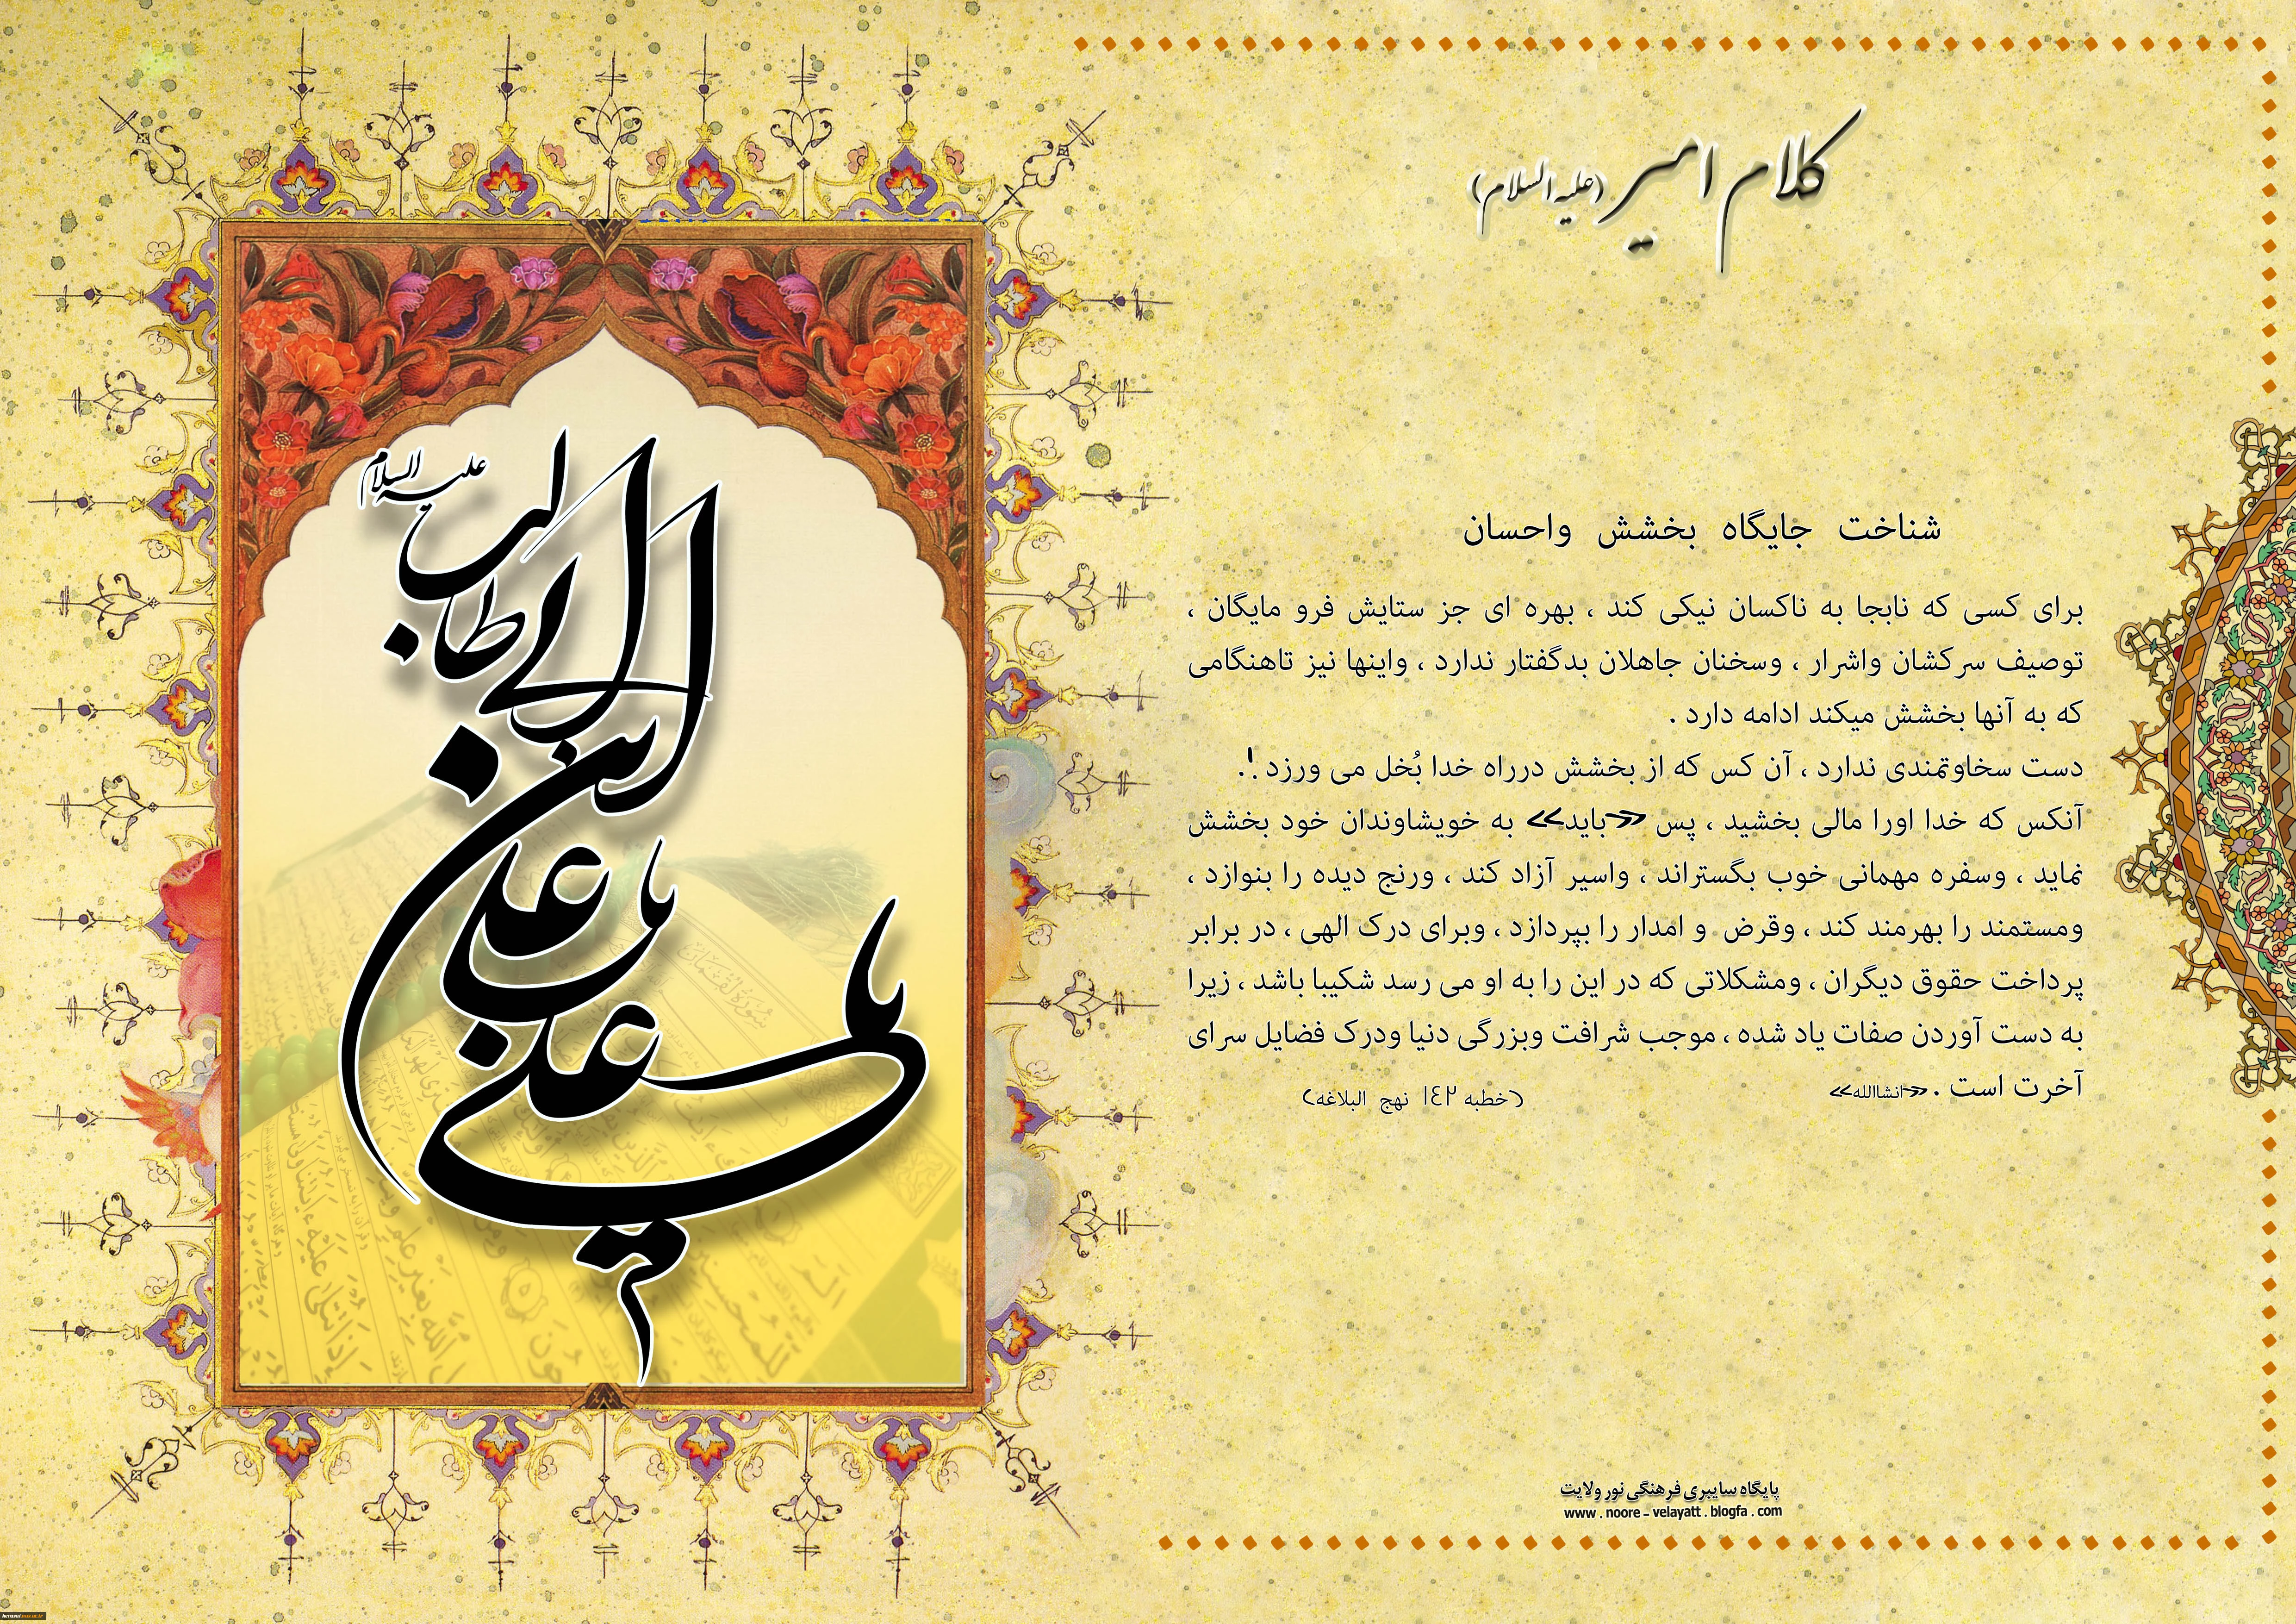 کلام امیر (علیه السلام)
شناخت جایگاه بخشش واحسان
برای کسی که نابجا به ناکسان نیکی کند ، بهره ای جز ستایش فرو مایگان ،
توصیف سرکشان واشرار ، وسخنان جاهلان بدگفتار ندارد ، واینها نیز تاهنگامی
که به آنها بخشش میکند ادامه دارد .
دست سخاوتمندی ندارد ، آن کس که از بخشش درراه خدا بُخل می ورزد !.
آنکس که خدا اورا مالی بخشید ، پس «باید» به خویشاوندان خود بخشش
نماید ، وسفره مهمانی خوب بگستراند ، واسیر آزاد کند ، ورنج دیده را بنوازد ،
ومستمند را بهرمند کند ، وقرض و امدار را بپردازد ، وبرای درک الهی ، در برابر
پرداخت حقوق دیگران ، ومشکلاتی که در این را به او می رسد شکیبا باشد ، زیرا
به دست آوردن صفات یاد شده ، موجب شرافت وبزرگی دنیا ودرک فضایل سرای
آخرت است . «انشاالله» (خطبه ١٤٢ نهج البلاغه)
پایگاه سایبری فرهنگی نور ولایت
www . noore - velayatt . blogfa . com
علیه السلام
ابن ابی طالب
یا علی
یا علی